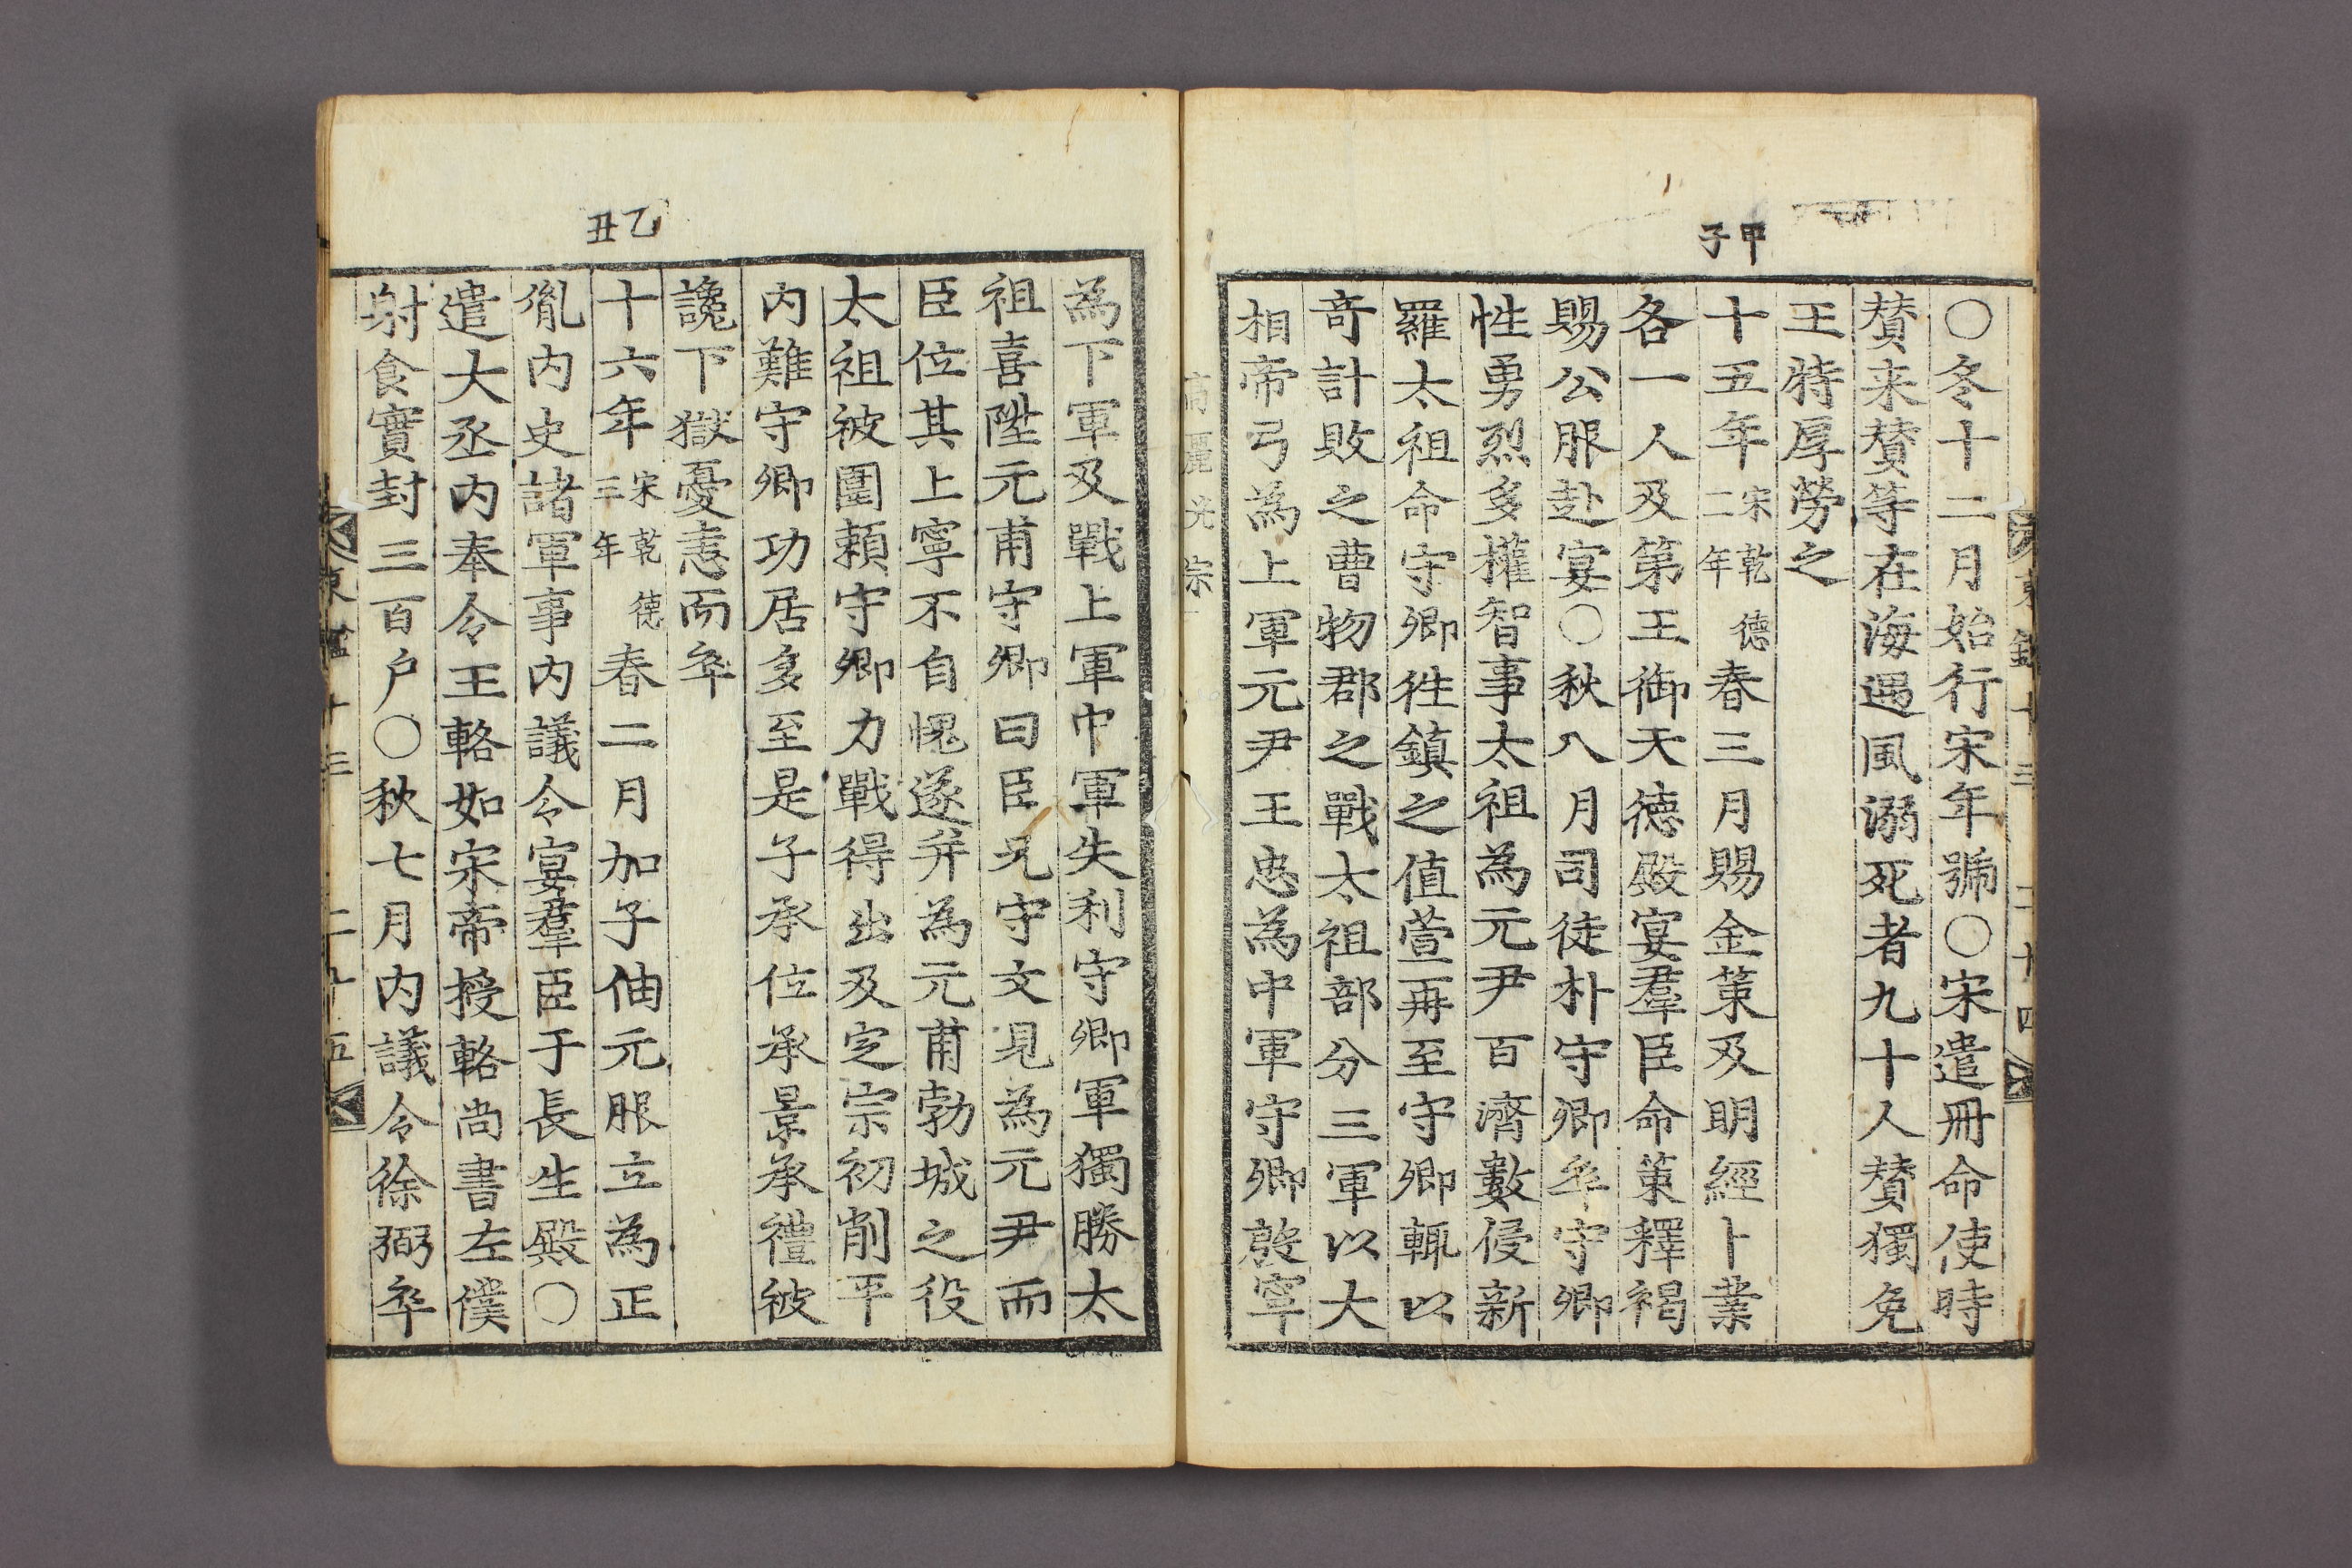 甲子
○冬十二月始行宋年號○宋遣冊命使時
賛来賛等在海遇風溺死者九十人賛獨免
王特厚勞之
十五年宋乾德二年春三月賜金策及明經卜業
各一人及第王御天德殿宴羣臣命策釋褐
賜公服赴宴○秋八月司徒朴守卿卒守卿
性勇烈多權智事太祖為元尹百濟數侵新
羅太祖命守卿徃鎮之值萱再至守卿輒以
竒計敗之曹物郡之戰太祖部分三軍以大
相帝弓為上軍元尹王忠為中軍守卿殷寧
高麗光宗
乙丑
為下軍及戰上軍中軍失利守卿軍獨勝太
祖喜陞元甫守卿曰臣兄守文見為元尹而
臣位其上寧不自愧遂幷為元甫勃城之役
太祖被圍頼守卿力戰得出及定宗初削平
内難守卿功居多至是子承位承景承禮被
讒下獄憂恚而卒
十六年宋乾德三年春二月加子伷元服立為正
胤内史諸軍事内議令宴羣臣于長生殿○
遣大丞内奉令王輅如宋帝授輅尚書左僕
射食實封三百戶○秋七月内議令徐弼卒
東鑑十三 二十五